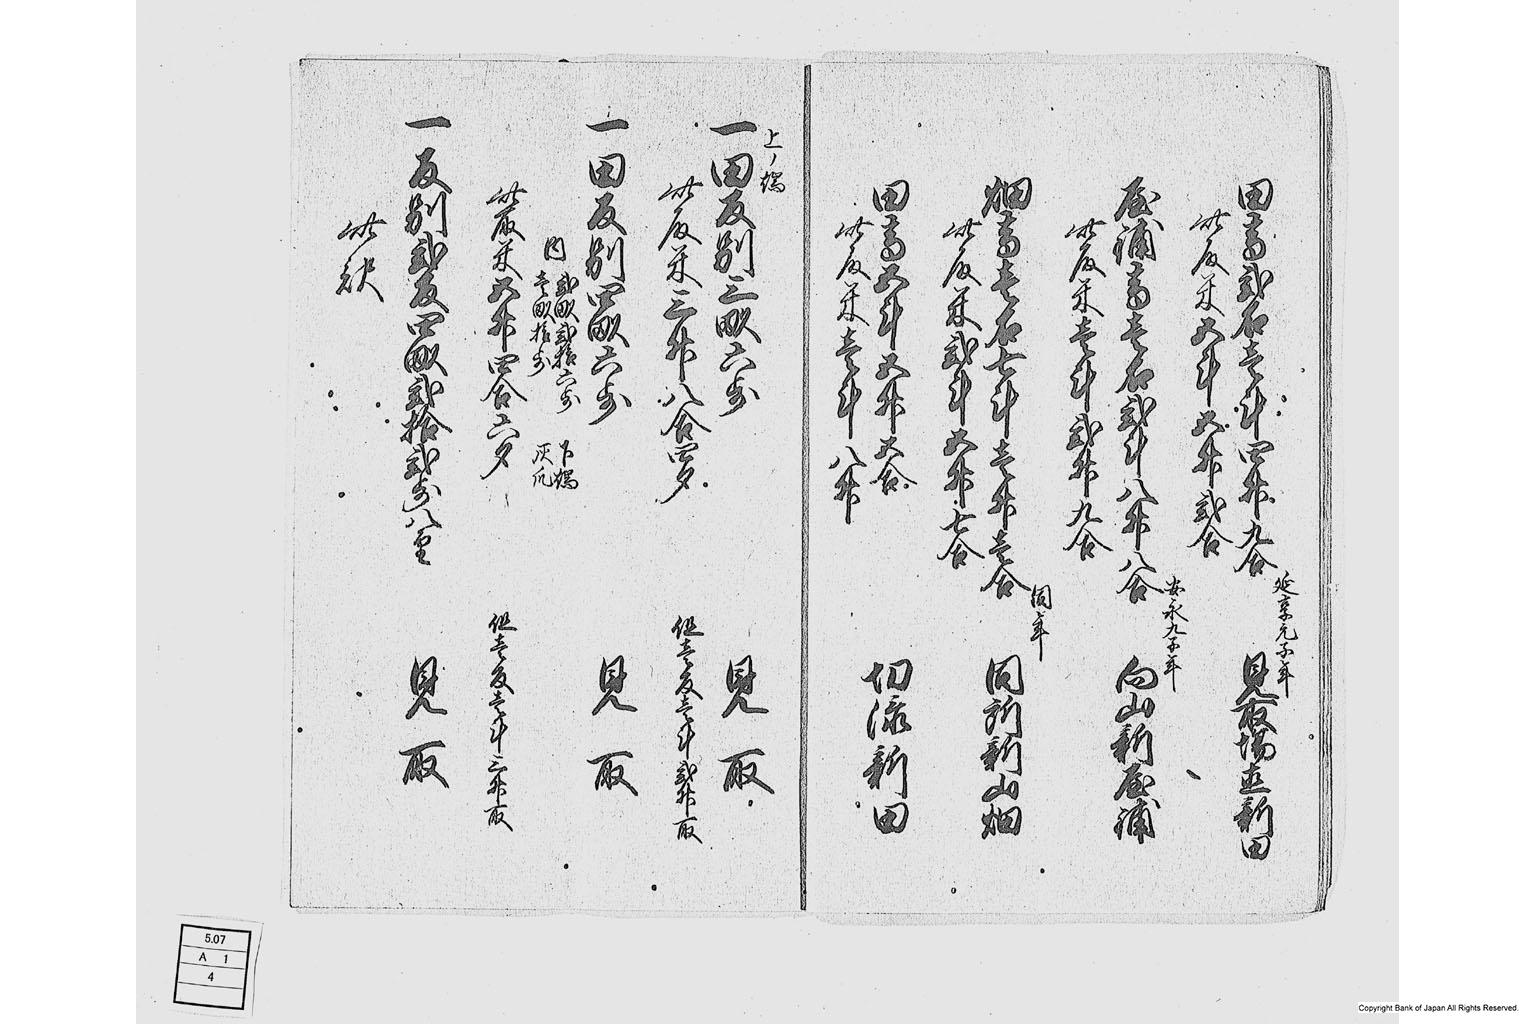 延享元子年
田高弐石壱斗四升九合 見取場直新田
此反米五斗五升弐合
安永九子年
屋浦高壱石弐斗八升八合 向山新屋浦
此反米壱斗弐升九合
同年
畑高壱石七斗壱升壱合 同所新山畑
此反米弐斗五升七合
田高五斗五升五合 切添新田
此反米壱斗八升
上ノ端
一田反別三畝六歩 見取
此反米三升八合四夕 但壱反壱斗弐升取
一田反別四畝六歩 見取
内 弐畝弐拾六歩 下端
壱畝拾歩 灰爪
此取米五升四合六夕 但壱反壱斗三升取
一反別弐反四畝弐拾弐歩八厘 見取
此訳
5.07
A 1
4
Copyright Bank of Japan All Rights Reserved.